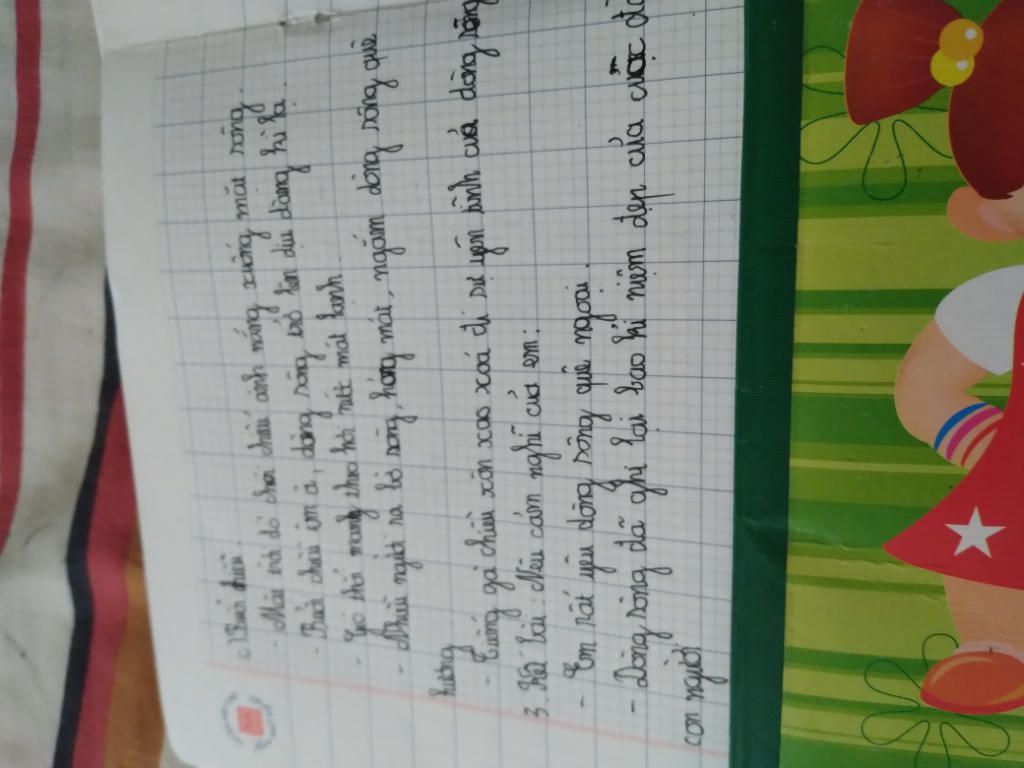 c) Buổi chiều
- Mặt trời đỏ chói chiếu ánh nắng xuống mặt sông.
- Buổi chiều êm ả, dòng sông trở lên dịu dàng hiền hòa.
- Gió thổi mang theo hơi nước mát lành.
- Nhiều người ra bờ sông, hóng mát, ngắm dòng sông quê
hương.
- Tiếng gà chiều xôn xao xoá đi sự yên bình của dòng sông
3. Kết bài: Nêu cảm nghĩ của em:
- Em rất yêu dòng sông quê ngoại.
- Dòng sông đã ghi lại bao kỉ niệm đẹp của cuộc
con người